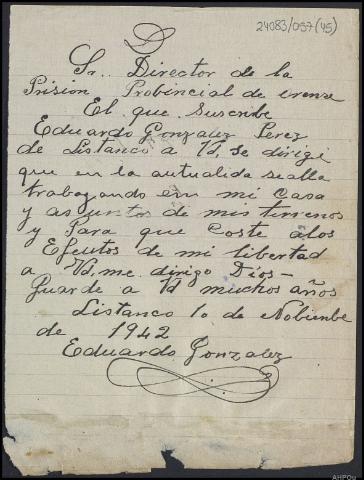 24083/057(45)
D
Sr. Director de la
Prision Probincial de orense
El que suscribe
Eduardo Gonzalez Perez
de Listanco a Vd, se dirigi
que en la autualida sealla
trabagando en mi casa
y asuntos de mis terrenos
y Para que coste alos
Efeutos de mi libertad
a Vd, me dirigo Dios-
Guarde a Vd muchos años
Listanco 10 de Nobienbe
de 1942
Eduardo Gonzalez
AHPOu